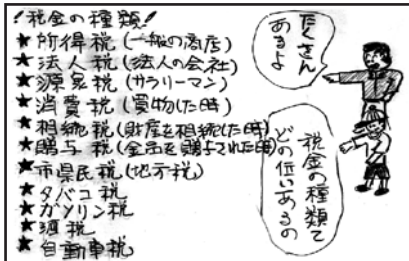 !税金の種類!
★所得税(一般の商店)
★法人税(法人の会社)
★源泉税(サラリーマン)
★消費税(買物した時)
★相続税(財産を相続した時)
★贈与税(金品を贈与された時)
★市県民税(地方税)
★タバコ税
★ガソリン税
★酒税
★自動車税
たくさん
あるよ
税金の種類て
どの位いあるの